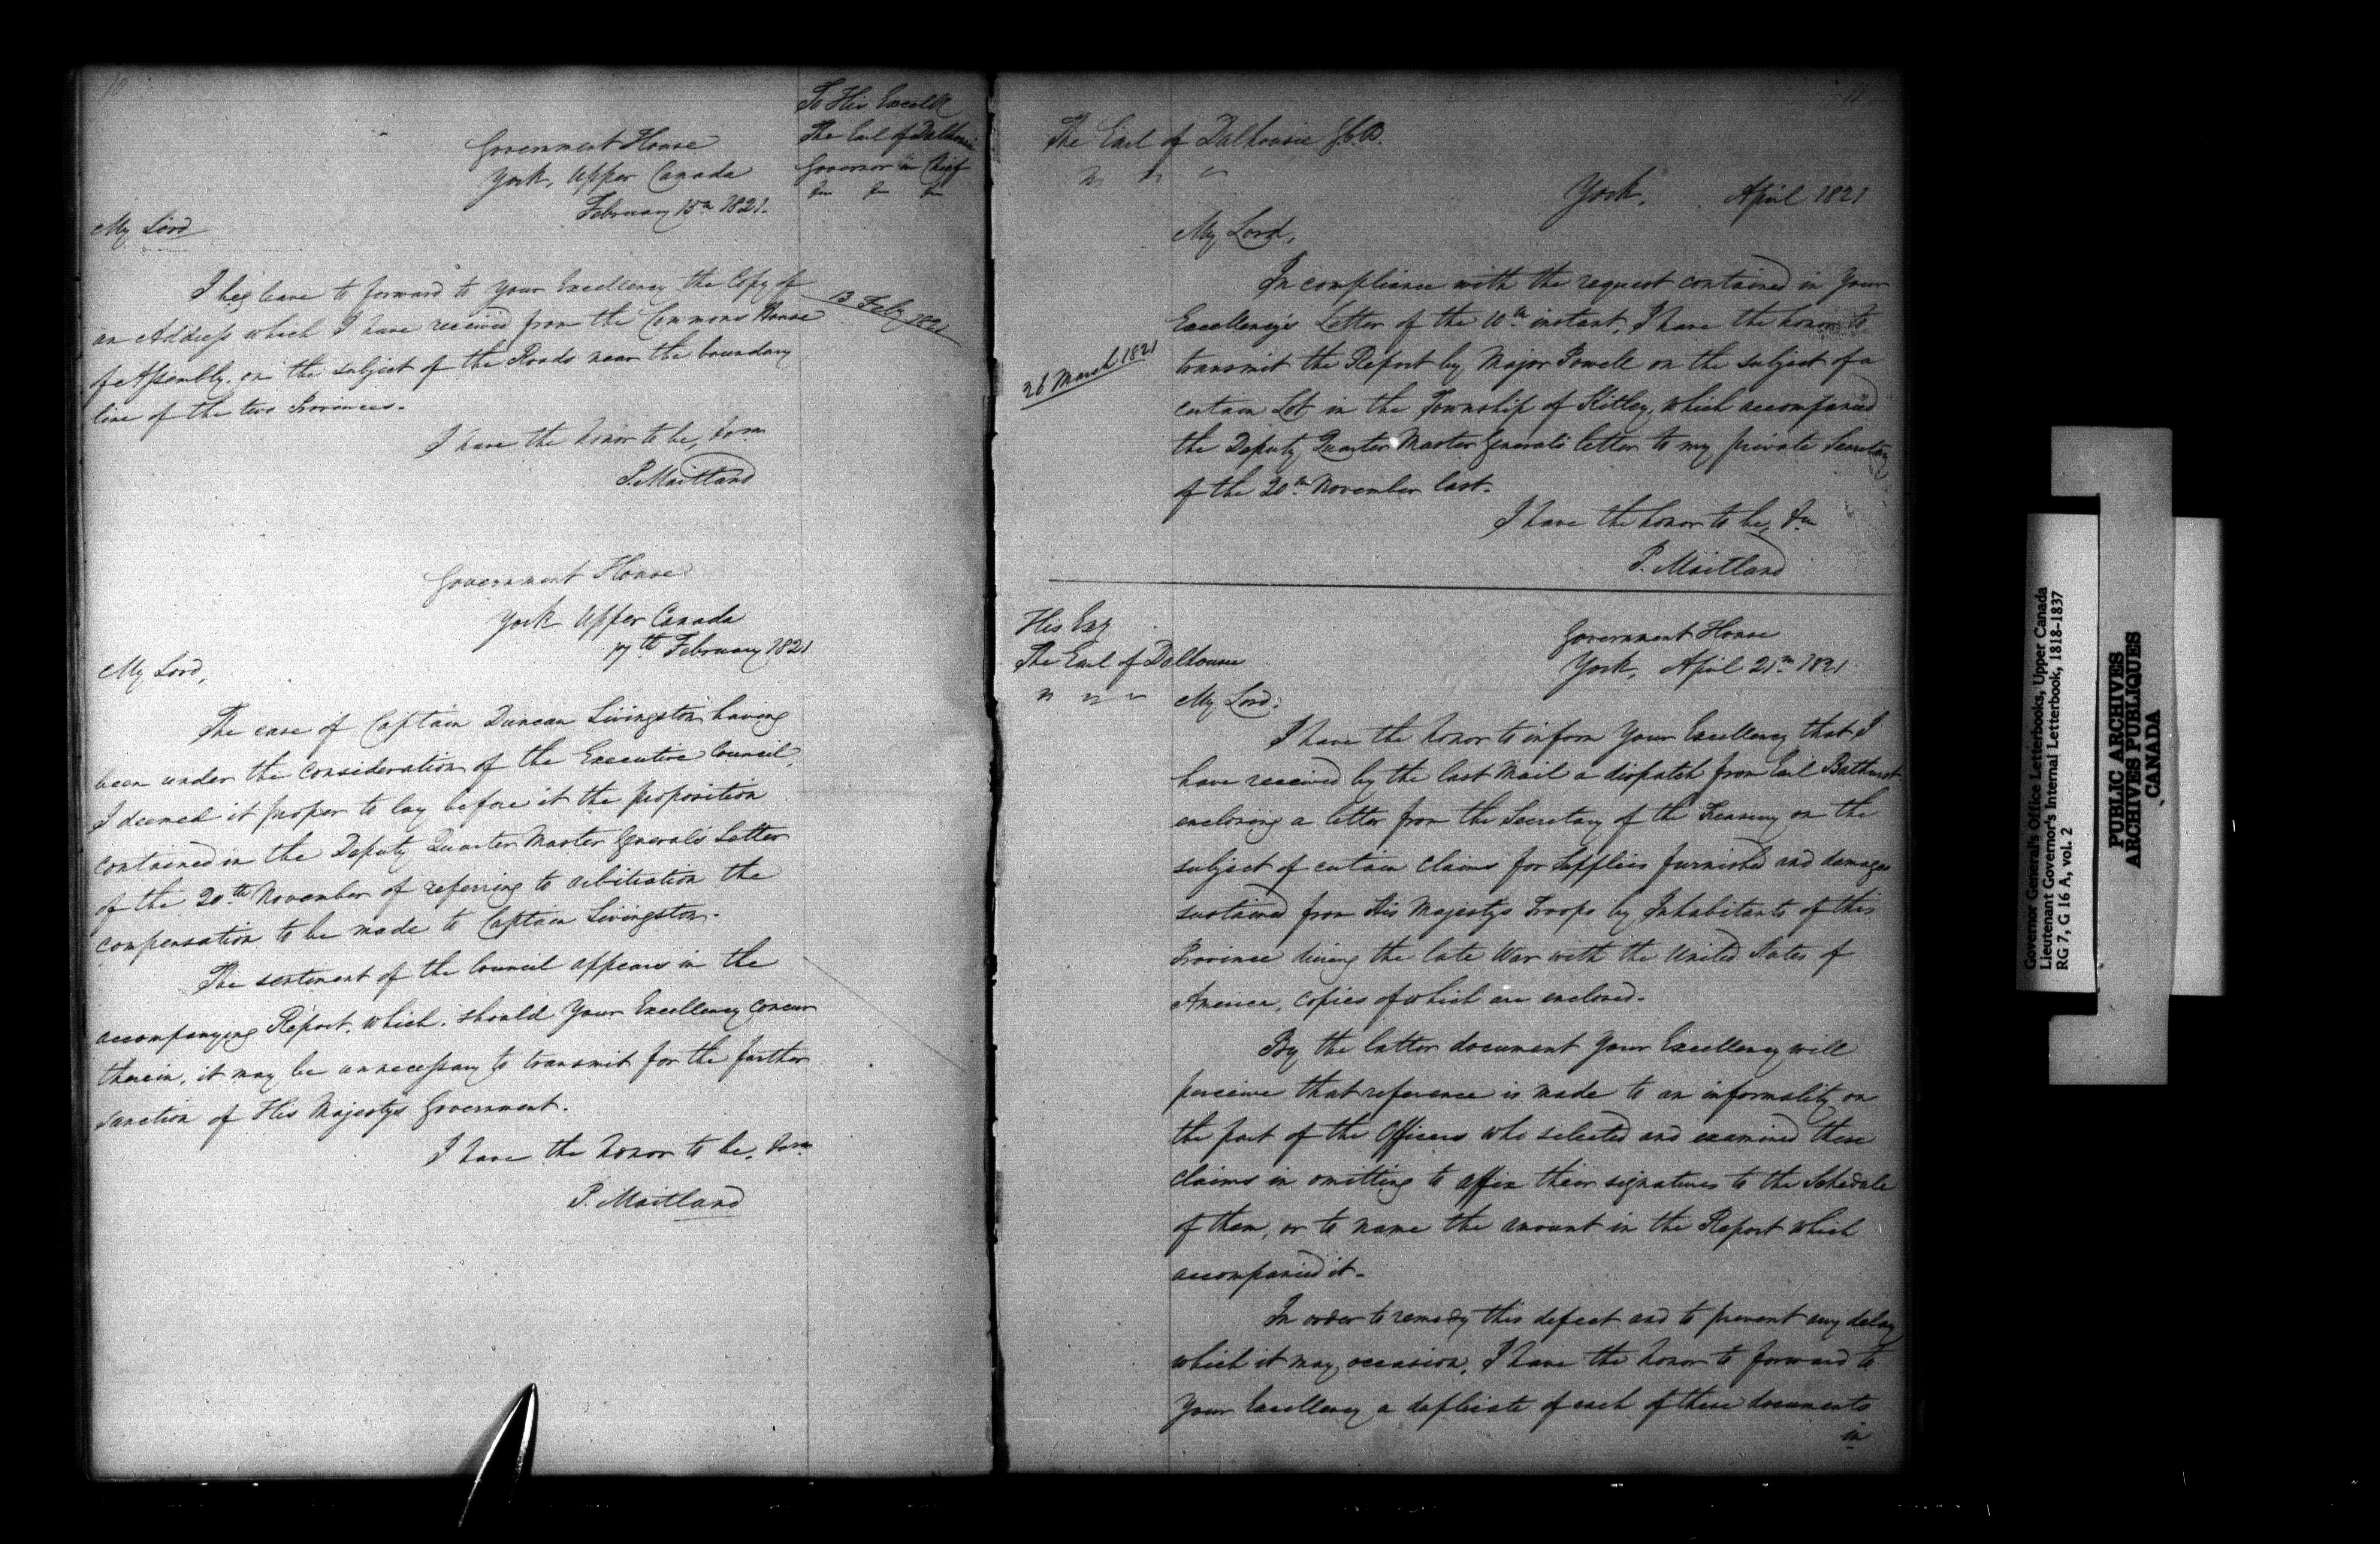 10
To His Excell
The Earl of Dalhousie
Governor in Chief
&c &c &c
Government House
York, Upper Canada
February 15th 1821.
My Lord
13 Feby 1821
I beg leave to forward to Your Excellency the Copy of
an Address which I have received from the Commons House
of Assembly, on the subject of the Roads near the boundary
line of the two Provinces.
I have the honor to be, &c
P. Maitland
Government House
York Upper Canada
17th February 1821
My Lord,
The case of Captain Duncan Livingston having
been under the consideration of the Executive Council,
I deemed it proper to lay before it the proposition
contained in the Deputy Quarter Master General's Letter
of the 20th November of referring to arbitration the
compensation to be made to Captain Livingston.
The sentiment of the Council appears in the
accompanying Report, which, should Your Excellency concur
therein, it may be unnecessary to transmit for the further
sanction of His Majestys Government.
I have the honor to be, &c
P. Maitland
11
The Earl of Dalhousie G.C.B.
" " "
York, April 1821
My Lord,
26 March 1821
In compliance with the request contained in Your
Excellency's Letter of the 10th instant, I have the honor to
transmit the Report by Major Powell on the subject of a
certain Lot in the Township of Kitley, which accompanied
the Deputy Quarter Master General's letter to my private Secretary
of the 20th November last.
I have the honor to be, &c
P. Maitland
His Exy
The Earl of Dalhousie
" " "
Government House
York, April 21st 1821
My Lord,
I have the honor to inform Your Excellency that I
have received by the last Mail a dispatch from Earl Bathurst
enclosing a letter from the Secretary of the Treasury on the
subject of certain Claims for Supplies furnished and damages
sustained from His Majestys Troops by Inhabitants of this
Province during the late War with the United States of
America, copies of which are enclosed.
By the latter document Your Excellency will
perceive that reference is made to an informality on
the part of the Officers who selected and examined these
claims in omitting to affix their signatures to the Schedule
of them, or to name the amount in the Report which
accompanied it.
In order to remedy this defect and to prevent any delay
which it may occasion, I have the honor to forward to
Your Excellency a duplicate of each of these documents
in
Governor General's Office Letterbooks, Upper Canada
Lieutenant Governor's Internal Letterbook, 1818-1837
RG 7, G 16 A, vol. 2
PUBLIC ARCHIVES
ARCHIVES PUBLIQUES
CANADA